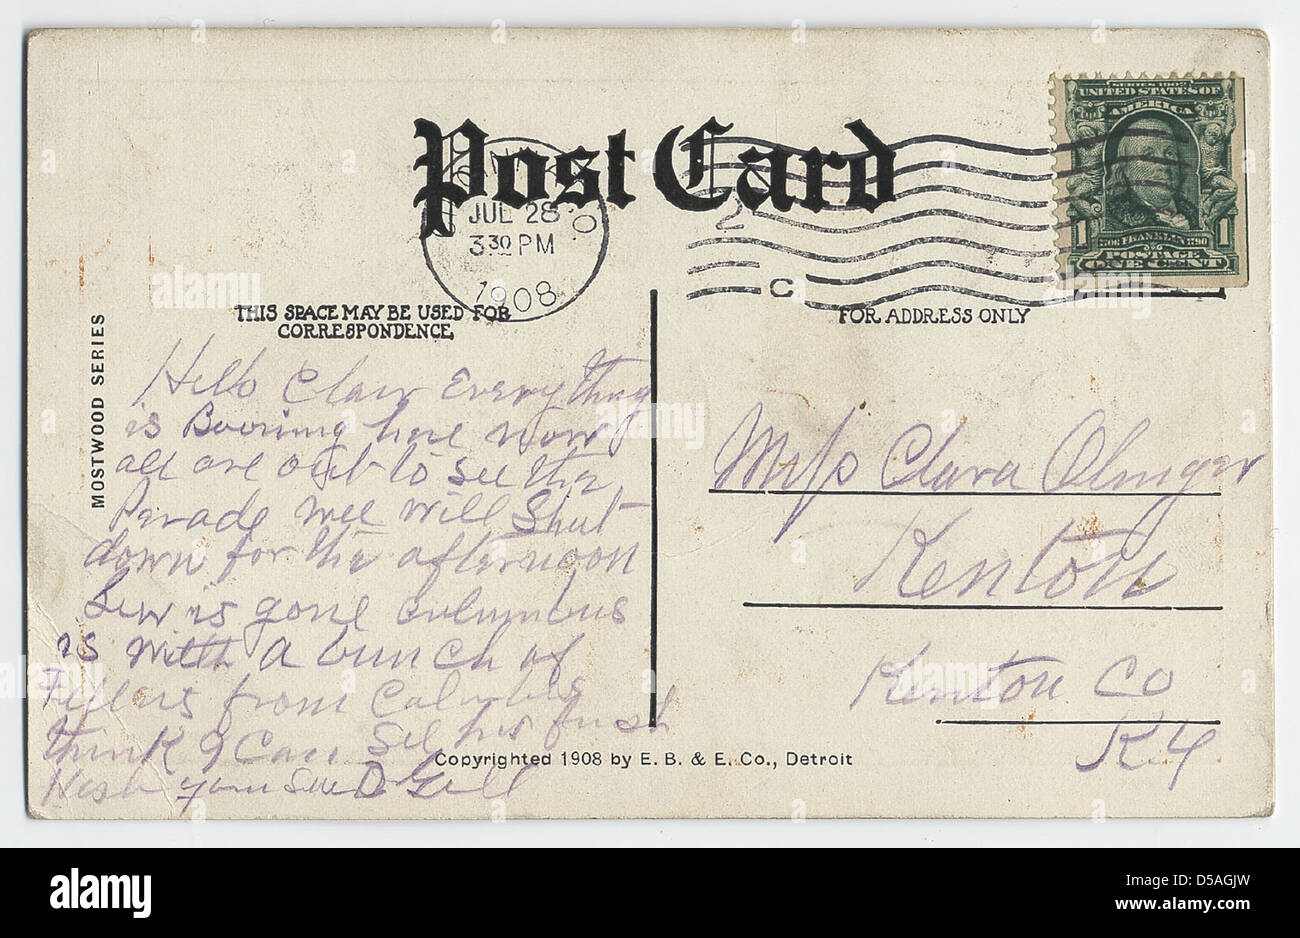 Post Card
JUL 28
3 30 PM
1908
C
SERIES 1902
UNITED STATES OF
AMERICA
1 1
1706 FRANKLIN 1790
POSTAGE
ONE CENT
THIS SPACE MAY BE USED FOR
CORRESPONDENCE,
FOR ADDRESS ONLY
MOSTWOOD SERIES
Hello Clair Everything
is Booming here now
all are out to see the
Parade wee will Shut
down for the afternoon
is gone columbus
is with a bunch of
from Columbus
think I can See his
Wish you
Miss Clara Olinger
Kenton
Kenton Co
Ky
Copyrighted 1908 by E. B. & E. Co., Detroit
alamy
alamy
alamy
alamy
a
a
a
alamy
Image ID: D5AGJW
www.alamy.com